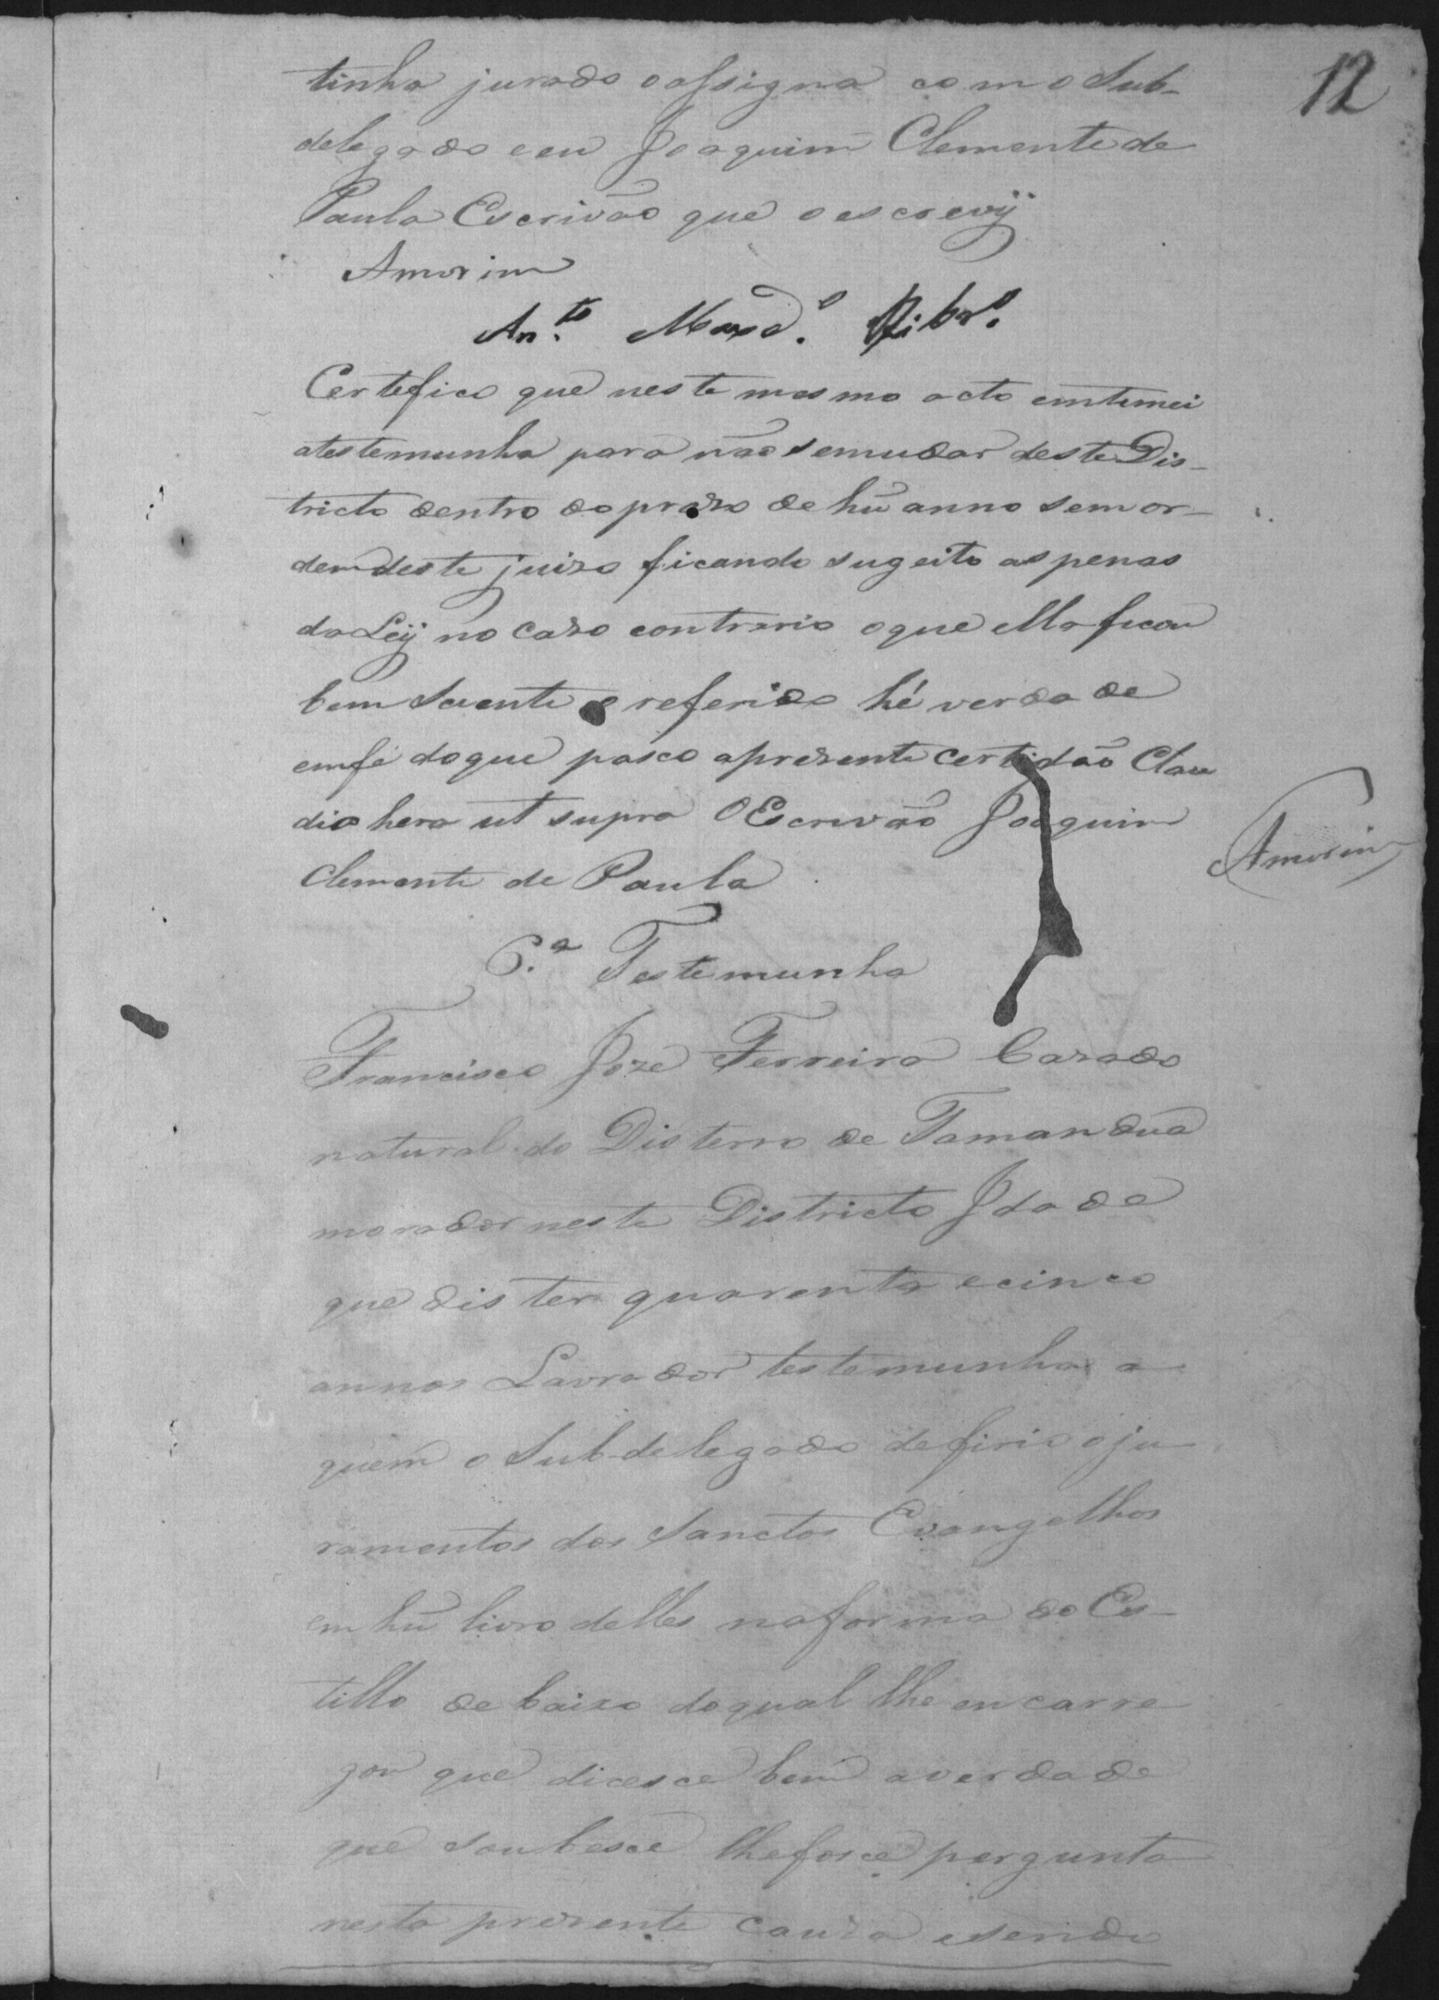 12
tinha jurado o assigna com o Sub-
delegado e eu Joaquim Clemente de
Paula Escrivão que o escrevÿ
Amorim
An.to Maxd.o Ribr.o
Certefico que neste mesmo acto emtimei
atestemunha para não semudar deste Dis-
tricto dentro do prazo de hũ anno sem or-
dem deste juizo ficando sugeito as penas
da Leÿ no cazo contrario oque ella ficou
bem Sciente o referido hé verdade
emfé doque pasço apresente certidão Clau
dio hera ut supra O Escrivão Joaquim
Clemente de Paula
Amorim
6.ª Testemunha
Francisco Joze Ferreira Cazado
natural do Disterro de Tamanduá
morador neste Districto Idade
que dis ter quarenta e cinco
annos Lavrador testemunha a
quem o Subdelegado defirio o ju-
ramentos dos Sanctos Evangelhos
em hũ livro delles naforma do Es-
tillo debaixo doqual lhe encarre
gou que dicesce bem averdade
que soubesce lhefosce pergunta
nesta prezente cauza esendo